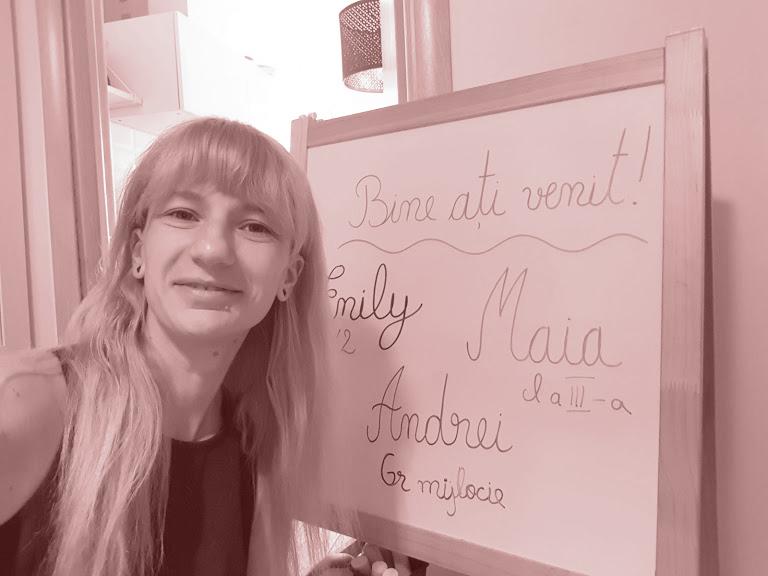 Bine ați venit!
Emily
'2
Maia
cl a III-a
Andrei
Gr mijlocie